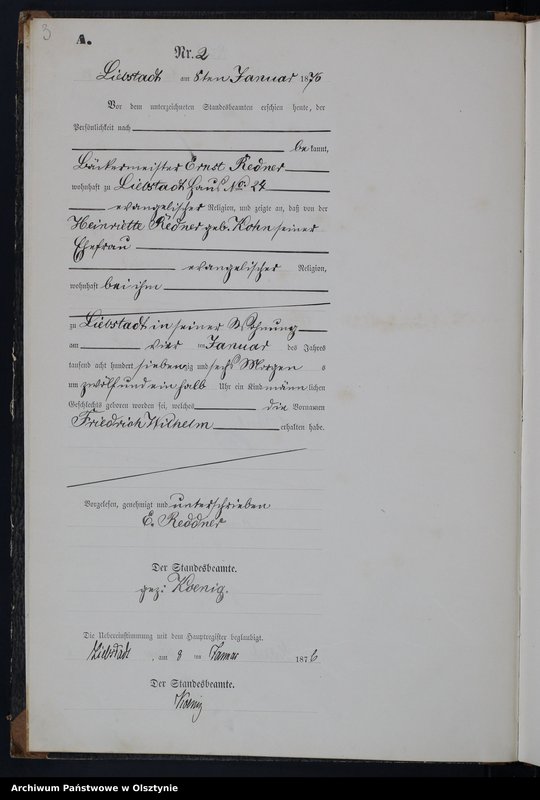 3
A.
Nr. 2
Liebstadt am 5ten Januar 1876
Vor dem unterzeichneten Standesbeamten erschien heute, der
Persönlichkeit nach
bekannt,
Bäckermeister Ernst Redner
wohnhaft zu Liebstadt Haus No 24
evangelischer Religion, und zeigte an, daß von der
Heinriette Redner geb. Kohn seiner
Ehefrau
evangelischer Religion,
wohnhaft bei ihm
zu Liebstadt in seiner Wohnung
am vier ten Januar des Jahres
tausend acht hundert siebenzig und sechs Morgens
um zwölf und ein halb Uhr ein Kind männlichen
Geschlechts geboren worden sei, welches die Vornamen
Friedrich Wilhelm erhalten habe.
Vorgelesen, genehmigt und unterschrieben
E. Reddner
Der Standesbeamte.
gez: Koenig.
Die Uebereinstimmung mit dem Hauptregister beglaubigt.
Liebstadt am 8 ten Januar 1876
Der Standesbeamte.
Koenig
Archiwum Państwowe w Olsztynie